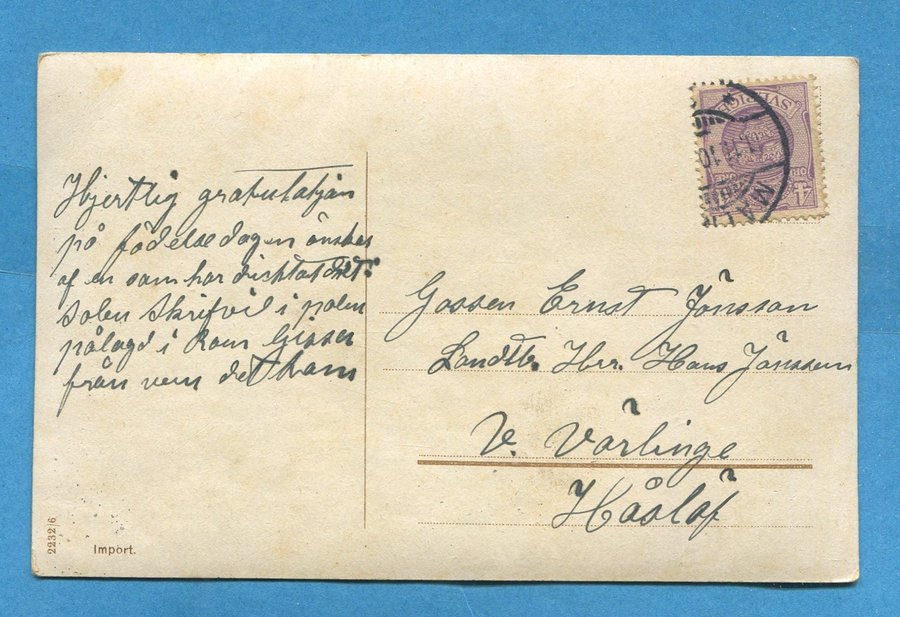 Hjertlig gratulatjån
på födelsedagen önskas
af en som har dichtat det:
solen skrifvid i polen
pålagd i kom Gissa
från vem det kam
Gossen Ernst Jönsson
Landtbr. Herr. Hans Jönsson
V. Värlinge
Håslöf
SVERIGE
MAL
10
4
2232/6
Import.